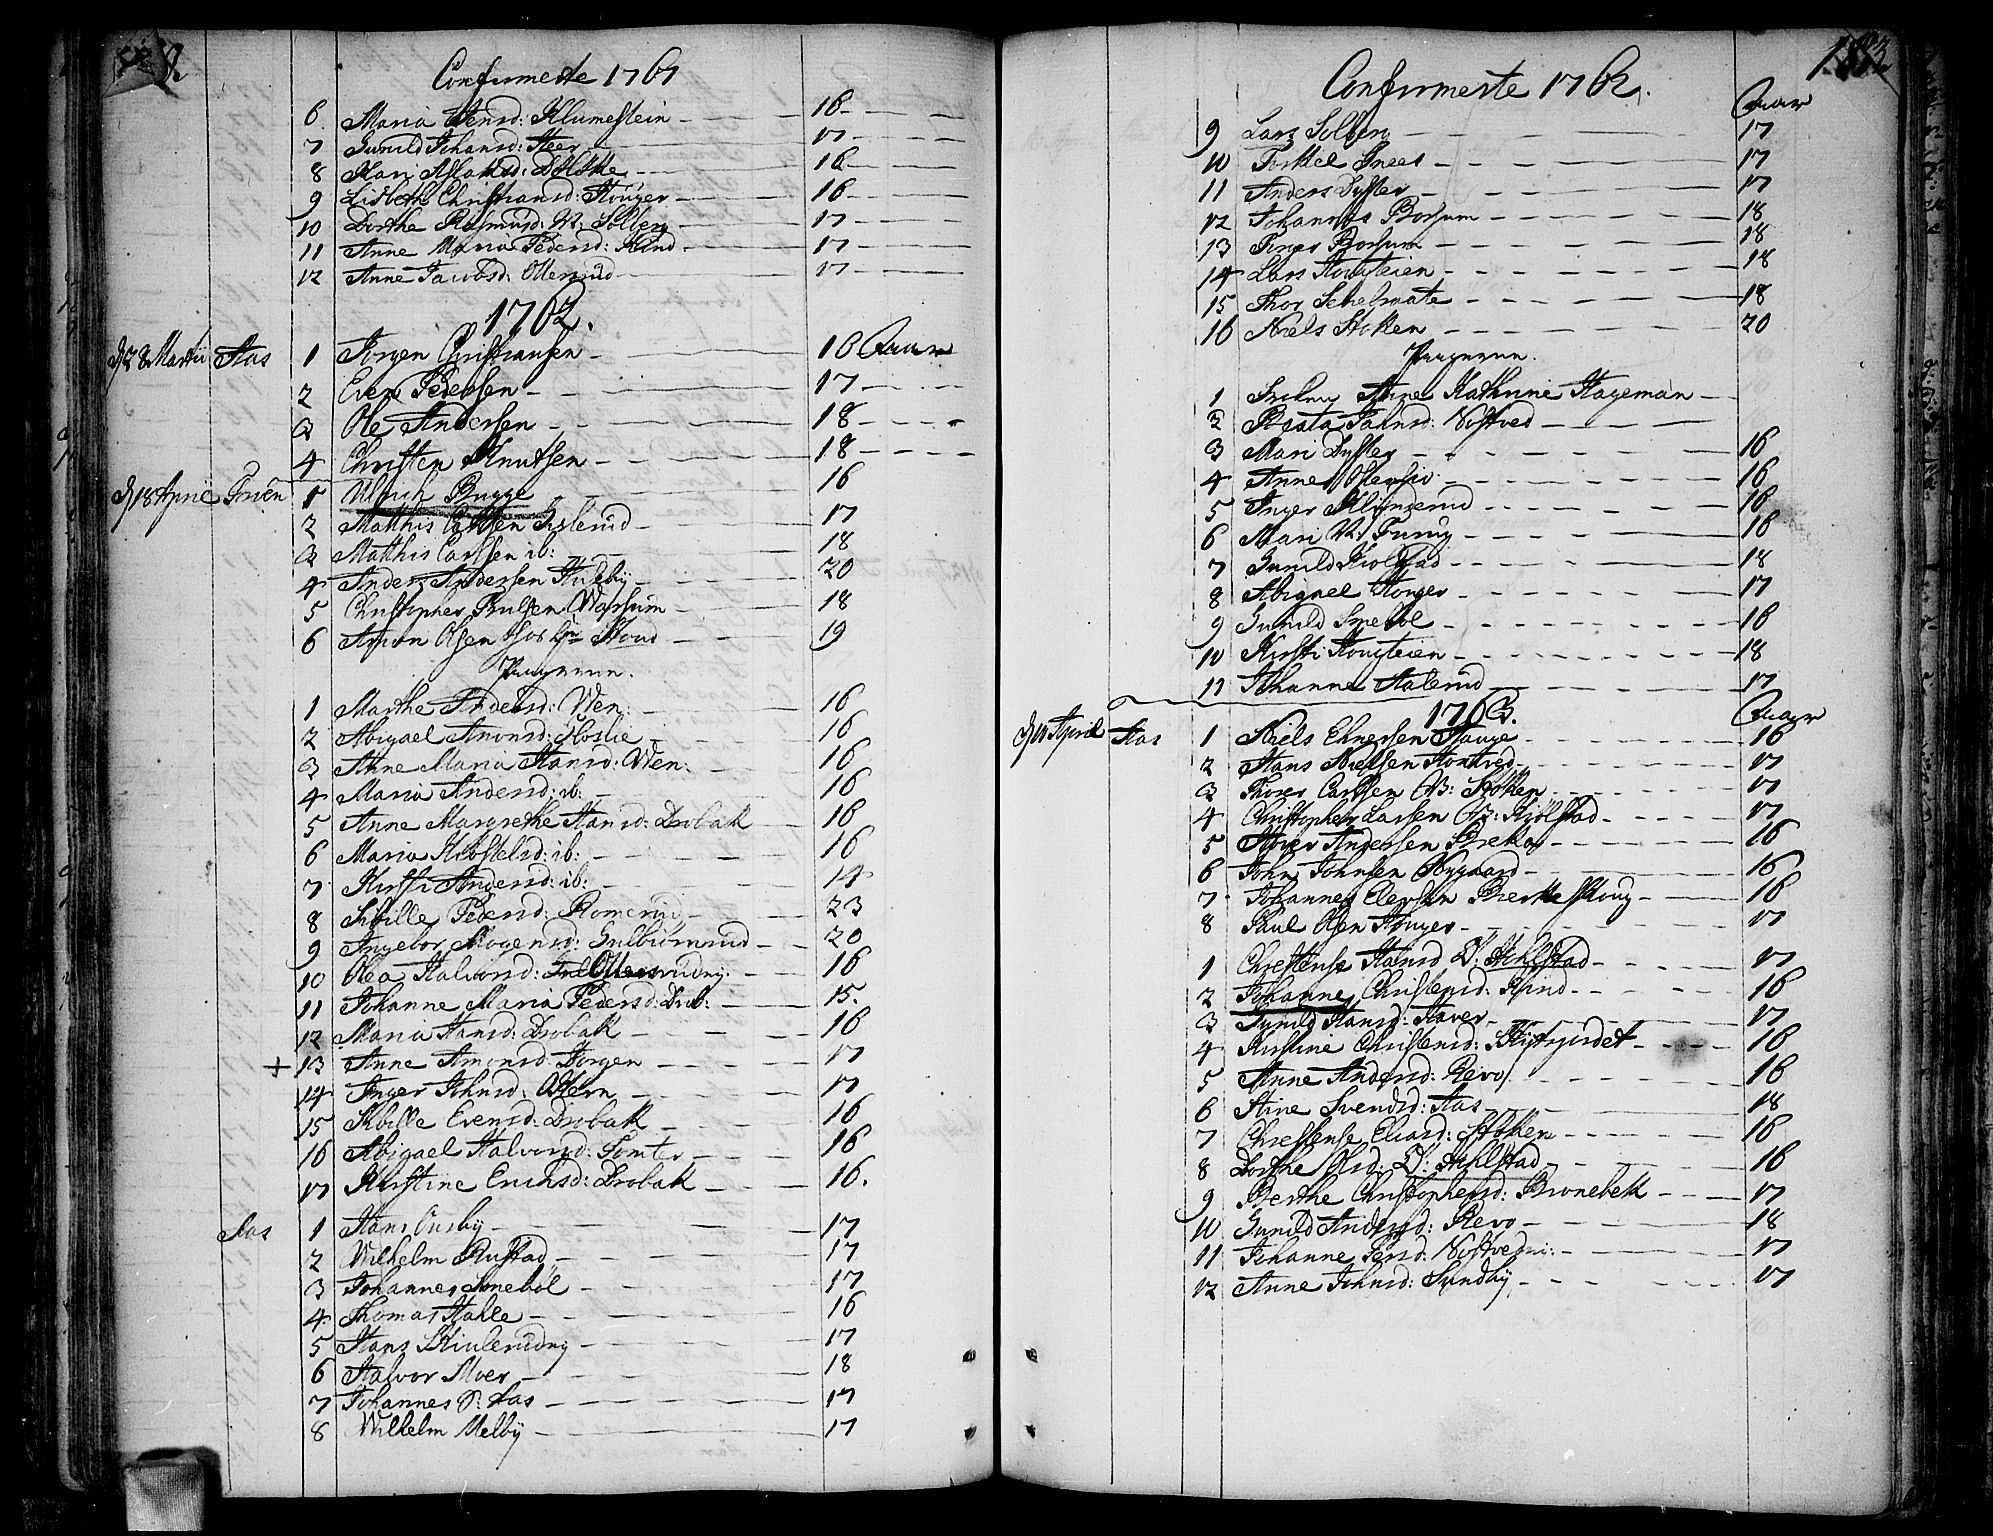 Confirmerte 1761
6. Maria Jensd: Klumestein 16
7 Gunild Johansd: Steer 17
8 Kari Aslaksd: 16
9 Lisbeth Christiansd: Kouger 16
10 Dorthe Rasmusd: V: Solberg 17
11 Anne Maria Pedersd: Rind 17
12 Anne Jacobsd: Ottersrud 17
1762.
d 28 Martii Aas 1 Jørgen Christiansen 16 Aar
2 Even Pedersen 17
3 Ole Andersen 18
4 Christen Knutsen 18
d 18 April Froen 1 Ulrich Bugge 16
2 Matthis Carlsen Huslerud 17
3 Matthis Carlsen ib: 18
4 Anders Andersen Huseby 20
5 Christopher Pulsen Warsum 18
6 Amon Olsen hos Hr Stoud 19
Pigerne.
1 Marthe Andersd: Wen: 16
2 Abigael Amonsd: Hoslie 16
3 Anne Maria Hansd: Wen: 16
4 Maria Andersd: ib: 16
5 Anne Margrethe Hansd: Drobak 16
6 Maria Kiostelsd: ib: 16
7 Kirsti Andersd: ib: 14
8 Sibille Pedersd: Romerud 23
9 Ingebor Mogensd: Gulbiørnrud 20
10 Olea Halvorsd: Ottersrudny 16
11 Johanne Maria Pedersd: Drob: 15.
12 Maria Hansd: Drobak 16
+ 13 Anne Amonsd: Dorgen 17
14 Inger Johnsd: Ottern 17
15 Sibille Evensd: Drobak 16
16 Abigael Halvorsd: Tomter 16
17 Kirstine Erichsd: Drobak 16.
Aas 1 Hans Ousby 17
2 Wilhelm Rustad 17
3 Johannes Smebøl 17
4 Thomas Holle 16
5 Hans Skiulerudny 17
6 Halvor Moer 18
7 Johannes P: Aas 17
8 Wilhelm Melby 17
Confirmerte 1762.
Aar
9 Lars Solberg 17
10 Torkel Snees 17
11 Anders Dyster 17
12 Johannes Borsum 18
13 Torger Borsum 18
14 Lars Hougteien 18
15 Thor Schelsraate 18
16 Niels Holten 20
Pigerne.
1 Frøken Anne Kathrine Hageman
2 Beata Johnsd: Nostved
3 Mari Dyster 16
4 Anne Ostensio 16
5 Inger Klomserud 16
6 Mari V: Furuy 16
7 Gunild Kiolstad 18
8 Abigael Konger 17
9 Gunild Smebol 16
10 Kirsti Hougteien 18
11 Johanne Aalerud 17
1763.
Aar
d 10 April Aas 1 Niels Ehnersen Hauge 16
2 Hans Nielsen Homtved 17
3 Thorer Carlsen V: Holten 17
4 Christopher Larsen V: Kiølstad 17
5 Hover Andersen Brekay 16
6 John Johnsen Nygaard 16
7 Johannes Elevsen Brekkeskoug 16
8 Paul Olsen Kouger 17
1 Chrestense Hansd: V: Kiølstad 17
2 Johanne Christensd: Rind 16
3 Gunild Hansd: Haver 17
4 Kirstine Christensd: Skiøtgierdet 16
5 Anne Andersd: Revo 16
6 Stine Svendsd: Aas 18
7 Chrestense Eliasd: Holten 16
8 Dorthe Olsd: V: Kiølstad 16
9 Berthe Christophersd: Bronebek 17
10 Gunild Andersd: Revo 18
11 Johanne Persd: Nostvedni: 17
12 Anne Johnsd: Sundby 17